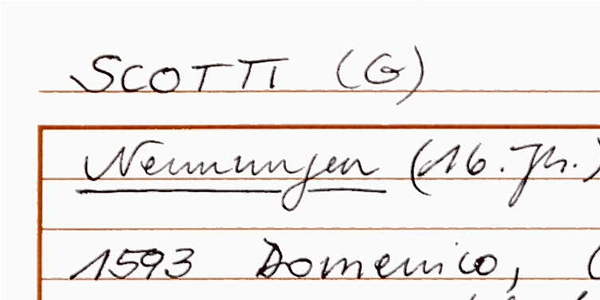 SCOTTI (G)
Nennungen (16. Jh.)
1593 Domenico, (